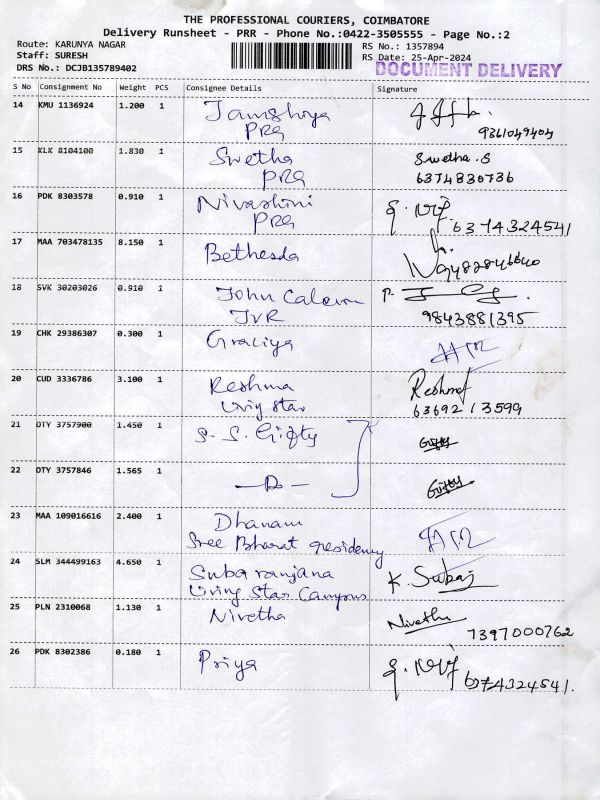 THE PROFESSIONAL COURIERS, COIMBATORE
Delivery Runsheet - PRR - Phone No.:0422-3505555 - Page No.:2
Route: KARUNYA NAGAR
Staff: SURESH
DRS No.: DCJB135789402
RS No.: 1357894
RS Date: 25-Apr-2024
DOCUMENT DELIVERY
S No Consignment No Weight PCS Consignee Details Signature
14 KMU 1136924 1.200 1 Jamshiya
PRG 9361049404
15 KLK 8104100 1.830 1 Swetha Swetha.S
PRG 6374830736
16 PDK 8303578 0.910 1 Nivashini
PRG 6374324541
17 MAA 703478135 8.150 1 Bethesda
18 SVK 30203026 0.910 1 John
JVR 9843881395
19 CHK 29386307 0.300 1 Graciya
20 CUD 3336786 3.100 1 Reshma Reshma
Living star 6369213599
21 OTY 3757900 1.450 1 S. S. Gifty Gifty
22 OTY 3757846 1.565 1 Gifty
23 MAA 109016616 2.400 1 Dhanam
Sree Bharat presidency
24 SLM 344499163 4.650 1 Subaranjana K. Subaj
Living Star Campus
25 PLN 2310068 1.130 1 Nivetha Nivetha
7397000762
26 PDK 8302386 0.180 1 Priya
6374324541.